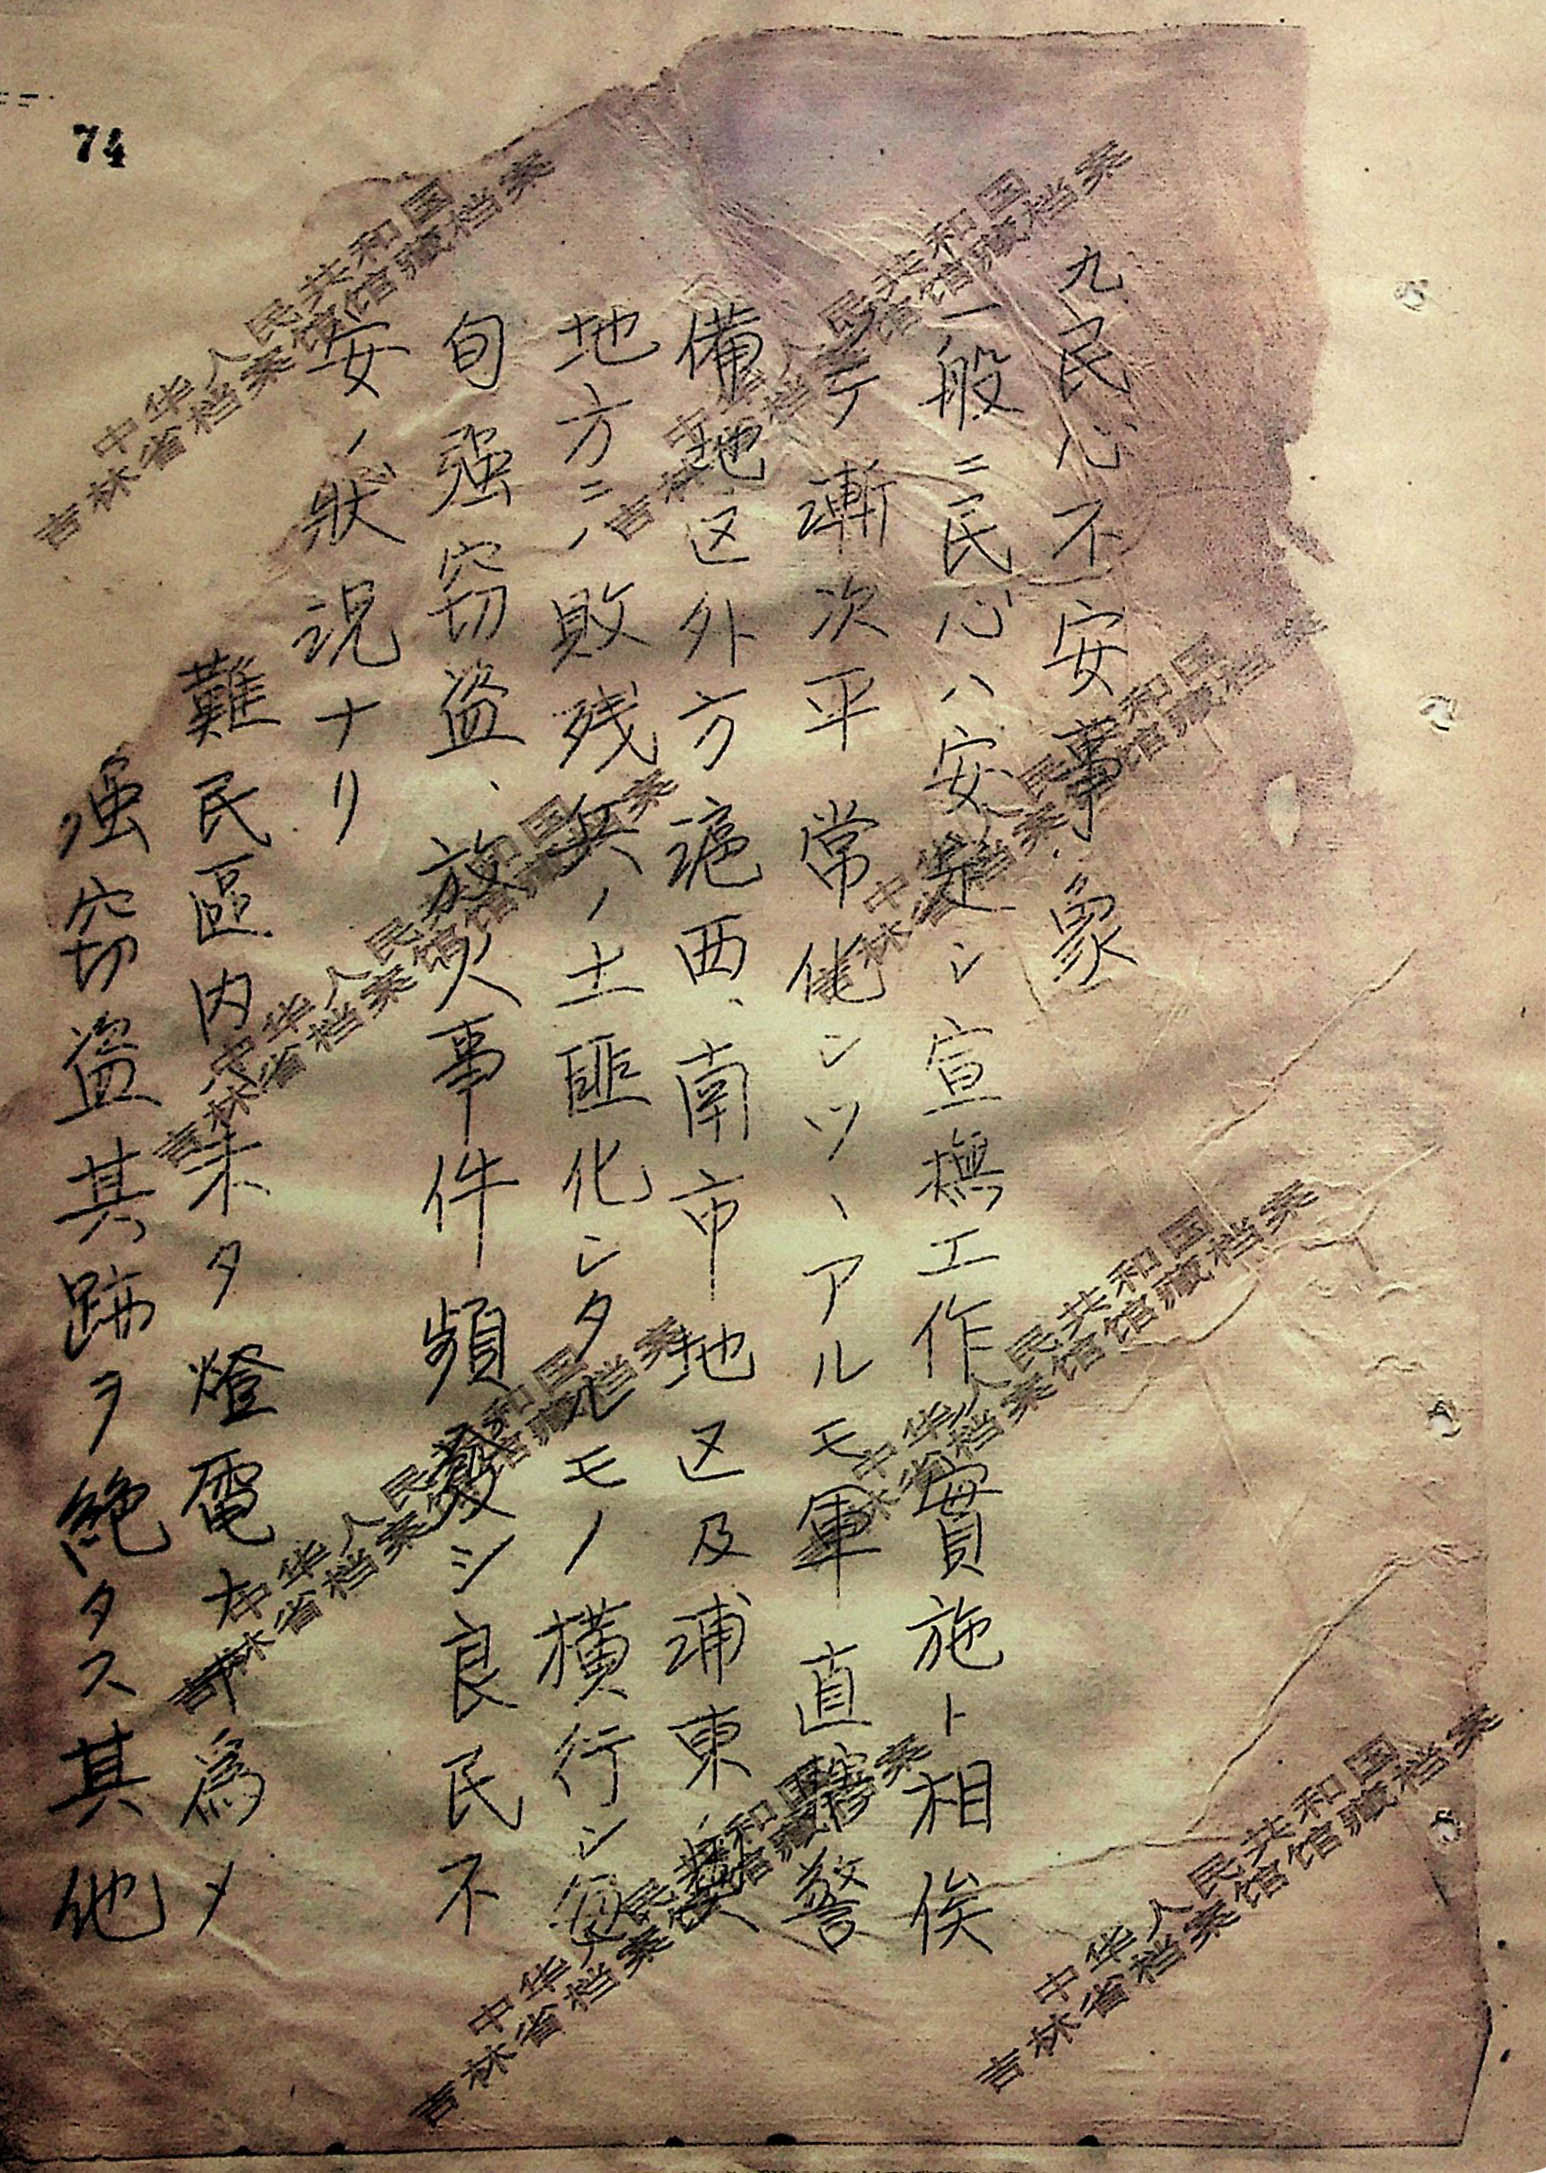 74
九、民心不安事象
一般ニ民心ハ安定シ宣撫工作實施ト相俟
ツテ漸次平常化シツヽアルモ軍直轄警
備地区外方滬西、南市地区及浦東
地方ニハ敗残兵ノ土匪化シタルモノ横行シ
旬强窃盗、放火事件頻發シ良民不
安ノ狀況ナリ
難民區内ハ未タ燈電ナキ爲メ
强窃盗其跡ヲ絶タス其他
中华人民共和国
吉林省档案馆馆藏档案
中华人民共和国
吉林省档案馆馆藏档案
中华人民共和国
吉林省档案馆馆藏档案
中华人民共和国
吉林省档案馆馆藏档案
中华人民共和国
吉林省档案馆馆藏档案
中华人民共和国
吉林省档案馆馆藏档案
中华人民共和国
吉林省档案馆馆藏档案
中华人民共和国
吉林省档案馆馆藏档案